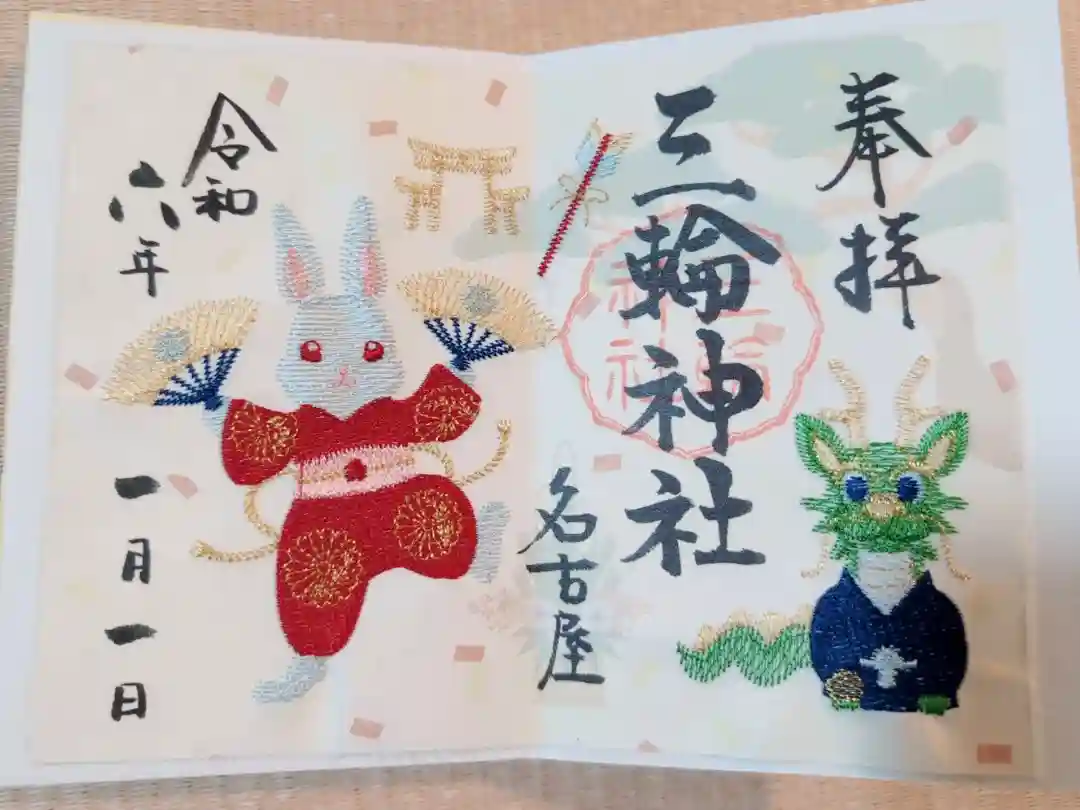 奉拝
三輪神社
名古屋
令和
六年
一月一日